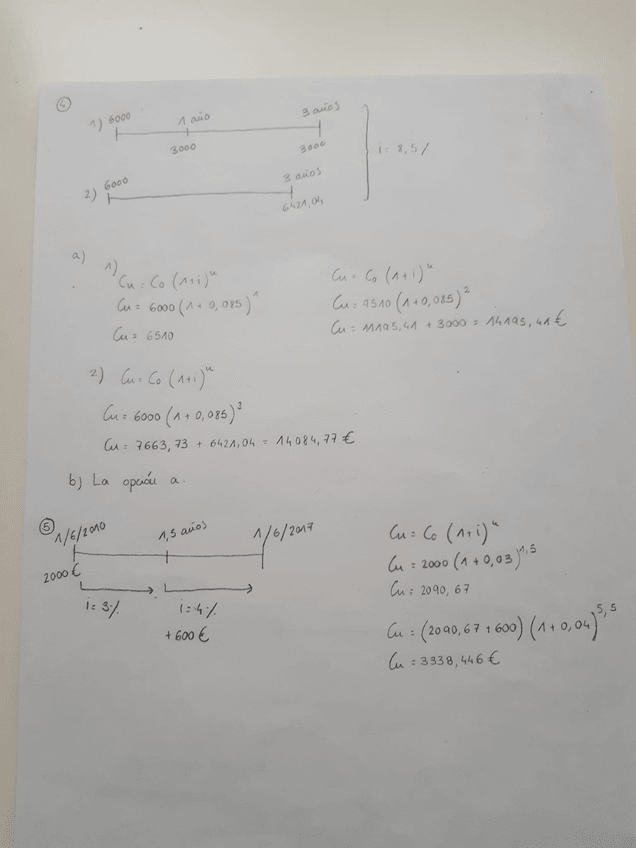 4
1) 6000 1 año 3 años
3000 3000
i = 8,5 %
2) 6000 3 años
6421,04
a)
1)
Cn = C0 (1+i)^n
Cn = 6000 (1 + 0,085)^1
Cn = 6510
Cn = C0 (1+i)^n
Cn = 9510 (1+0,085)^2
Cn = 11195,41 + 3000 = 14195,41 €
2) Cn = C0 (1+i)^n
Cn = 6000 (1 + 0,085)^3
Cn = 7663,73 + 6421,04 = 14084,77 €
b) La opción a.
5
1/6/2010 1,5 años 1/6/2017
2000 €
i = 3 % i = 4 %
+ 600 €
Cn = C0 (1+i)^n
Cn = 2000 (1 + 0,03)^1,5
Cn = 2090,67
Cn = (2090,67 + 600) (1 + 0,04)^5,5
Cn = 3338,446 €